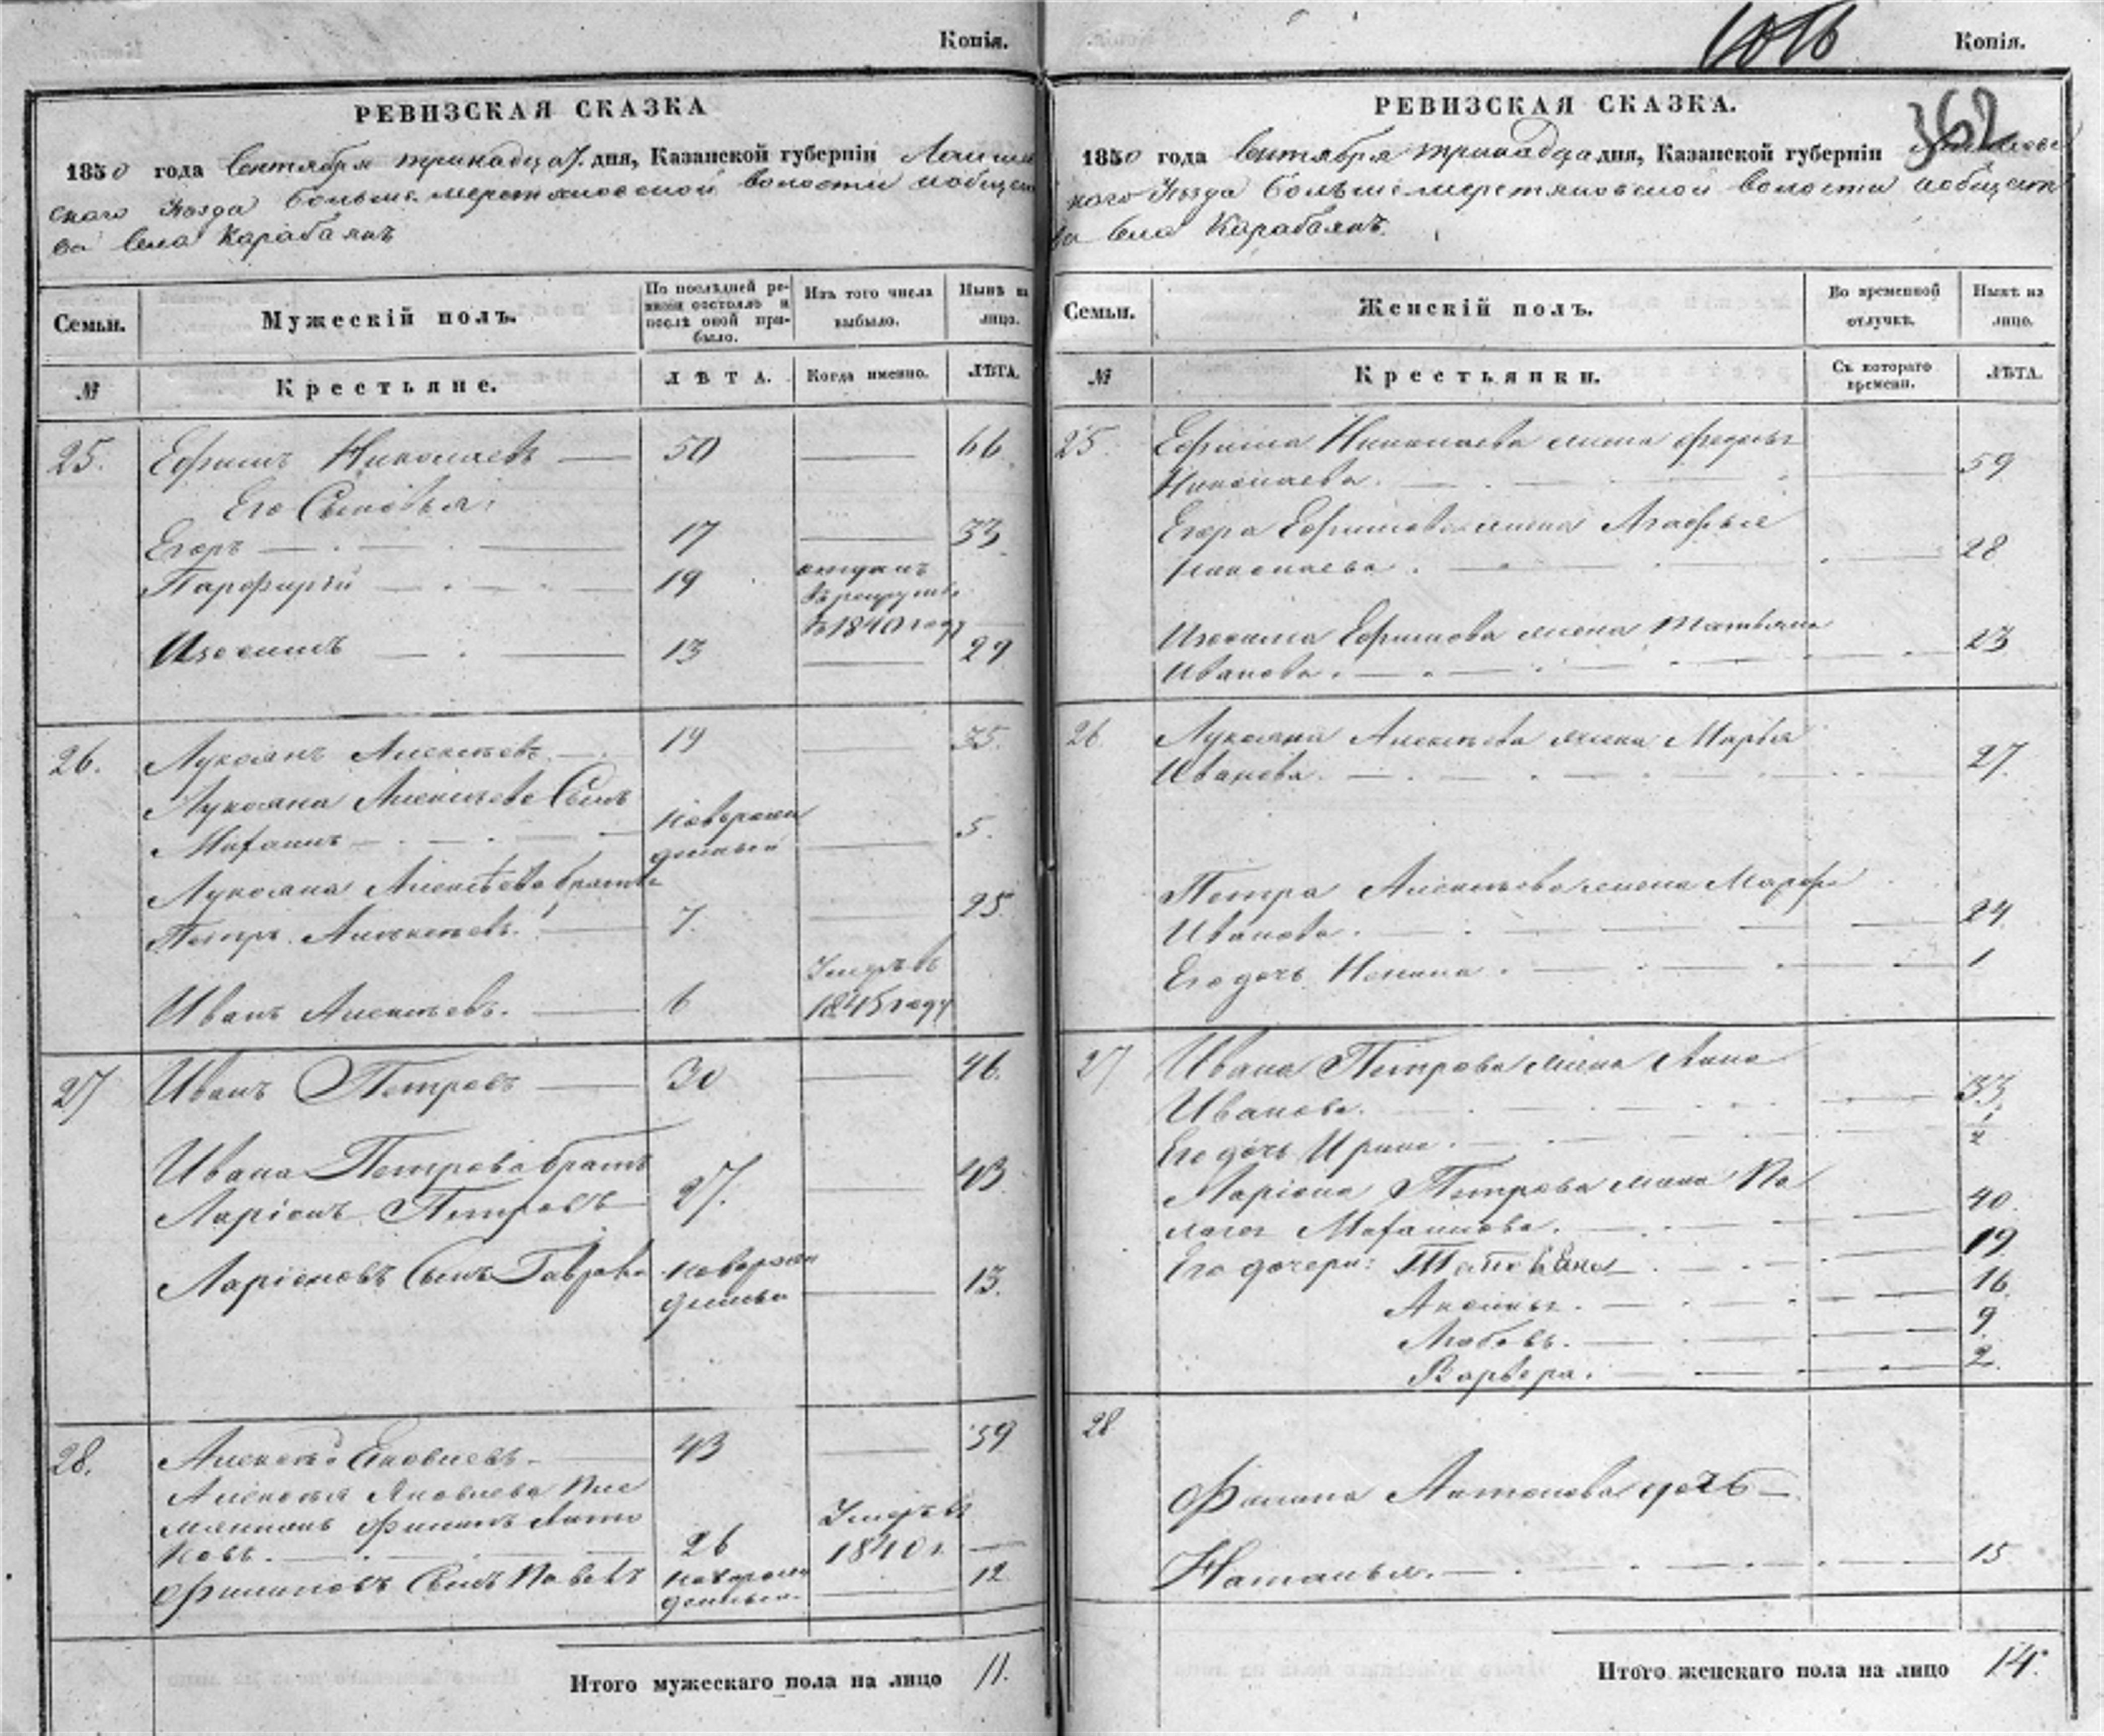 Копія.
РЕВИЗСКАЯ СКАЗКА
1850 года Сентября тринадцат. дня, Казанской губерніи Лаише
скаго Уѣзда Больше меретяковской волости изобщест
ва Села Карабаянъ
Семьи.
Мужескій полъ.
По послѣдней ре-
визіи состояло и
послѣ оной при-
было.
Изъ того числа
выбыло.
Нынѣ на
лицо.
№
Крестьяне.
ЛѢТА.
Когда именно.
ЛѢТА.
25. Ефимъ Николаевъ — 50 — 66
Его Сыновья:
Егоръ — 17 — 33
Парфирій — 19 отданъ
въ рекруты
въ 1840 году —
Изосимъ — 13 — 29
26. Лукоянъ Алексѣевъ — 19 — 35.
Лукояна Алексѣева Сынъ
новорож
— 5.
денный
Лукояна Алексѣева братья
Петръ Алексѣевъ — 7. — 25
Иванъ Алексѣевъ. — 6 Умеръ въ
1845 году
27 Иванъ Петровъ — 30 — 46.
Ивана Петрова братъ
Ларіонъ Петровъ 27. — 43
Ларіоновъ Сынъ новорож
денный — 13.
28. Алексѣй Яковлевъ — 43 — 59
Алексѣя Яковлева пле
мянникъ Филипъ Анто
новъ. — 26 Умеръ въ
1840 г. —
Филиповъ Сынъ новорож
денный — 12
Итого мужескаго пола на лицо 11.
Копія.
362
РЕВИЗСКАЯ СКАЗКА.
1850 года Сентября тринадца дня, Казанской губерніи
каго Уѣзда Большемеретяковской волости изобщест
ва Села Карабаянъ.
Семьи.
Женскій полъ.
Во временной
отлучкѣ.
Нынѣ на
лицо.
№
Крестьянки.
Съ котораго
времени.
ЛѢТА.
25 Ефима Николаева жена
Николаева. — 59
Егора Ефимова жена Агафья
Николаева. — 28
Изосима Ефимова жена Татьяна
Иванова. — 23
26. Лукояна Алексѣева жена Марья
Иванова. — 27.
Петра Алексѣева жена Марфа
Иванова. — 24
Его дочь — 1
27 Ивана Петрова жена Анна
Иванова. — 33.
Его дочь Ирина. — 1/2
Ларіона Петрова жена Пе
лагея — 40
Его дочери: Татьяна — 19
Аксинья. — 16
Любовь. — 9
Варвара. — 2.
28
Филипа Антонова дочь —
Наталья. — 15
Итого женскаго пола на лицо 14.